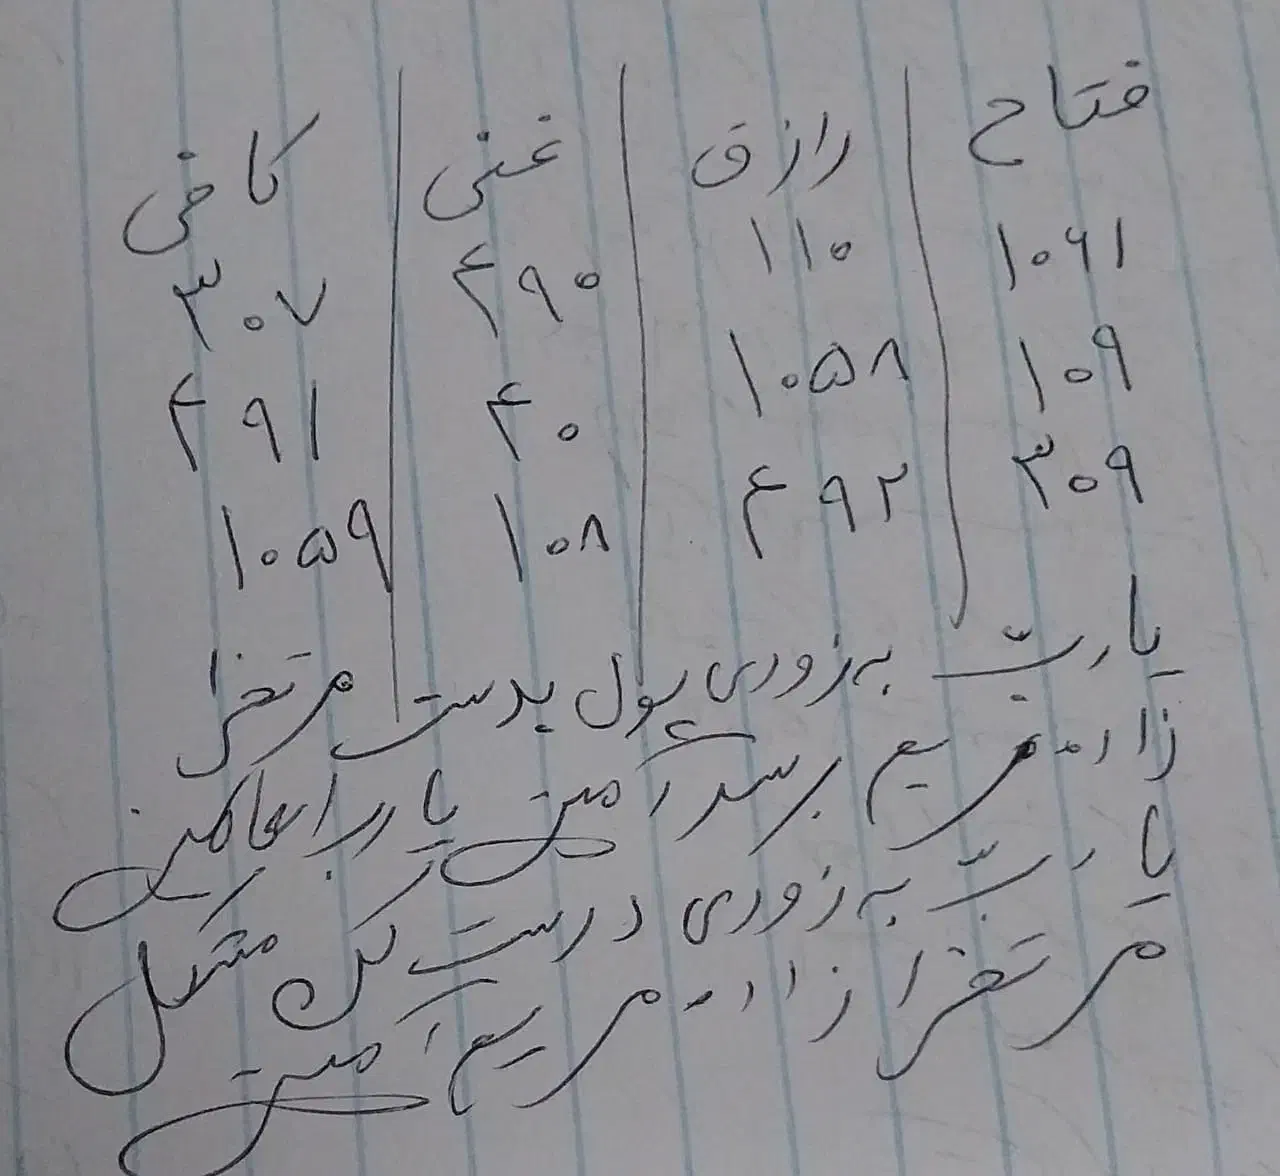 فتاح | رازق | غنی | کافی
۱۰۶۱ | ۱۱۰ | ۴۹۰ | ۳۰۷
۱۰۹ | ۱۰۵۸ | ۴۰ | ۴۹۱
۳۰۹ | ۴۹۲ | ۱۰۸ | ۱۰۵۹
یارب به زودی پول بدست مرتضی
زاده مریم برسد آمین یارب العالمین
یارب به زودی درست کن مشکل
مرتضی زاده مریم آمین